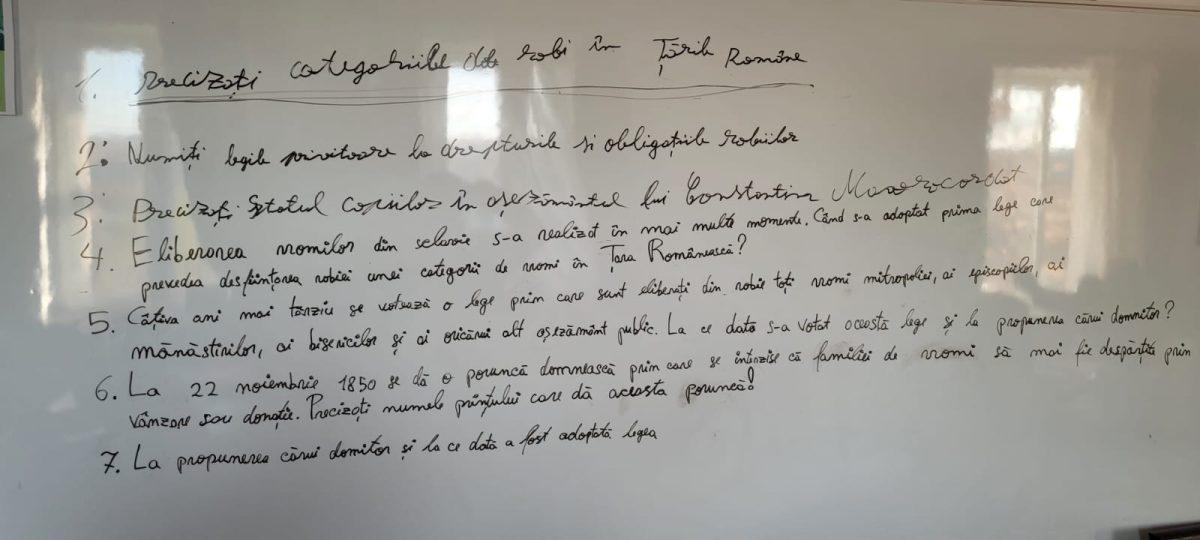 1. Precizați categoriile de robi în Țările Române
2: Numiți legile privitoare la drepturile si obligațiile robiilor
3. Precizați Statul copiilor în așezământul lui Constantin Mavrocordat
4. Eliberarea rromilor din sclavie s-a realizat în mai multe momente. Când s-a adoptat prima lege care
prevedea desființarea robiei unei categorii de rromi în Țara Românească?
5. Câțiva ani mai târziu se votează o lege prin care sunt eliberați din robie toți rromi mitropoliei, ai episcopiilor, ai
mănăstirilor, ai bisericilor și ai oricărui alt așezământ public. La ce dată s-a votat această lege și la propunerea cărui domnitor?
6. La 22 noiembrie 1850 se dă o poruncă domnească prin care se interzise că familiei de rromi să mai fie despărțită prin
vânzare sau donație. Precizați numele prințului care dă aceasta poruncă!
7. La propunerea cărui domitor și la ce dată a fost adoptată legea